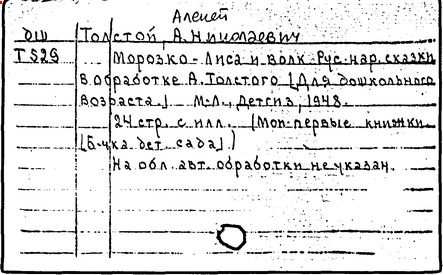 Алексей
дш Толстой, А. Николаевич
Т529 Морозко - Лиса и волк. Рус. нар. сказки
в обработке А. Толстого [Для дошкольного
возраста.] М.-Л., Детгиз, 1948.
24 стр. с илл. (Мои первые книжки
[Б-чка дет. сада].)
На обл. авт. обработки не указан.